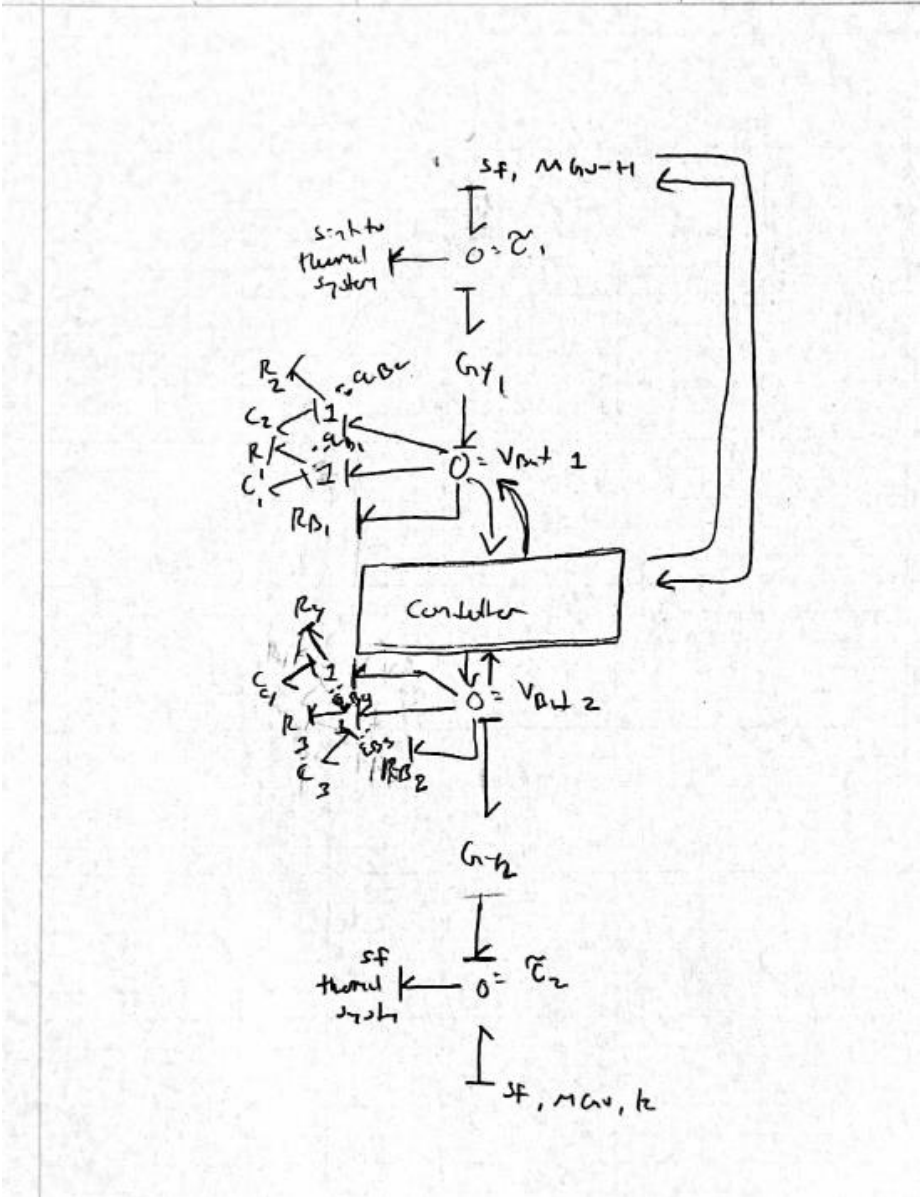 Sf, MGU-H
sink to
thermal
system
0 = τ̃₁
Gy₁
R₂
C₂
1
R₁
C₁
1
0 = VBat 1
RB₁
Controller
1
0 = VBat 2
R₃
C₃
RB₂
Gy₂
Sf
thermal
system
0 = τ̃₂
Sf, MGU, k